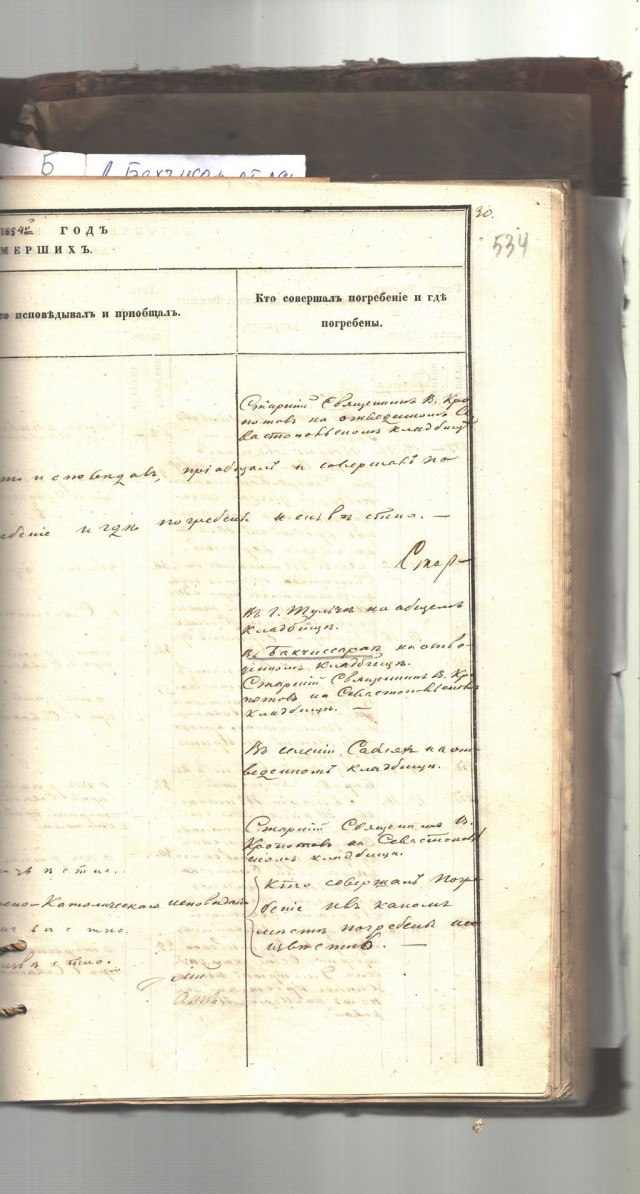 Б
1854го ГОДЪ
30.
534
МЕРШИХЪ.
го исповѣдывалъ и пріобщалъ.
Кто совершалъ погребеніе и гдѣ
погребены.
Старшій Священникъ В. Кро
потовъ на отведенномъ Се
вастопольскомъ кладбищѣ
исповѣдавъ, пріобщалъ и совершалъ по
ребеніе и гдѣ погребенъ неизвѣстно. —
Стар-
въ г. Тульчѣ на общемъ
кладбищѣ.
въ Бакчисараѣ на отве-
денномъ кладбищѣ.
Старшій Священникъ В. Кро
потовъ на Севастопольскомъ
кладбищѣ. —
Въ селеніи на от-
веденномъ кладбищѣ.
Старшій Священникъ В.
Кропотовъ на Севастополь
скомъ кладбищѣ.
Кто совершалъ погр
Католическаго исповѣданія
ребеніе и въ какомъ
мѣстѣ погребены не
извѣстно. —